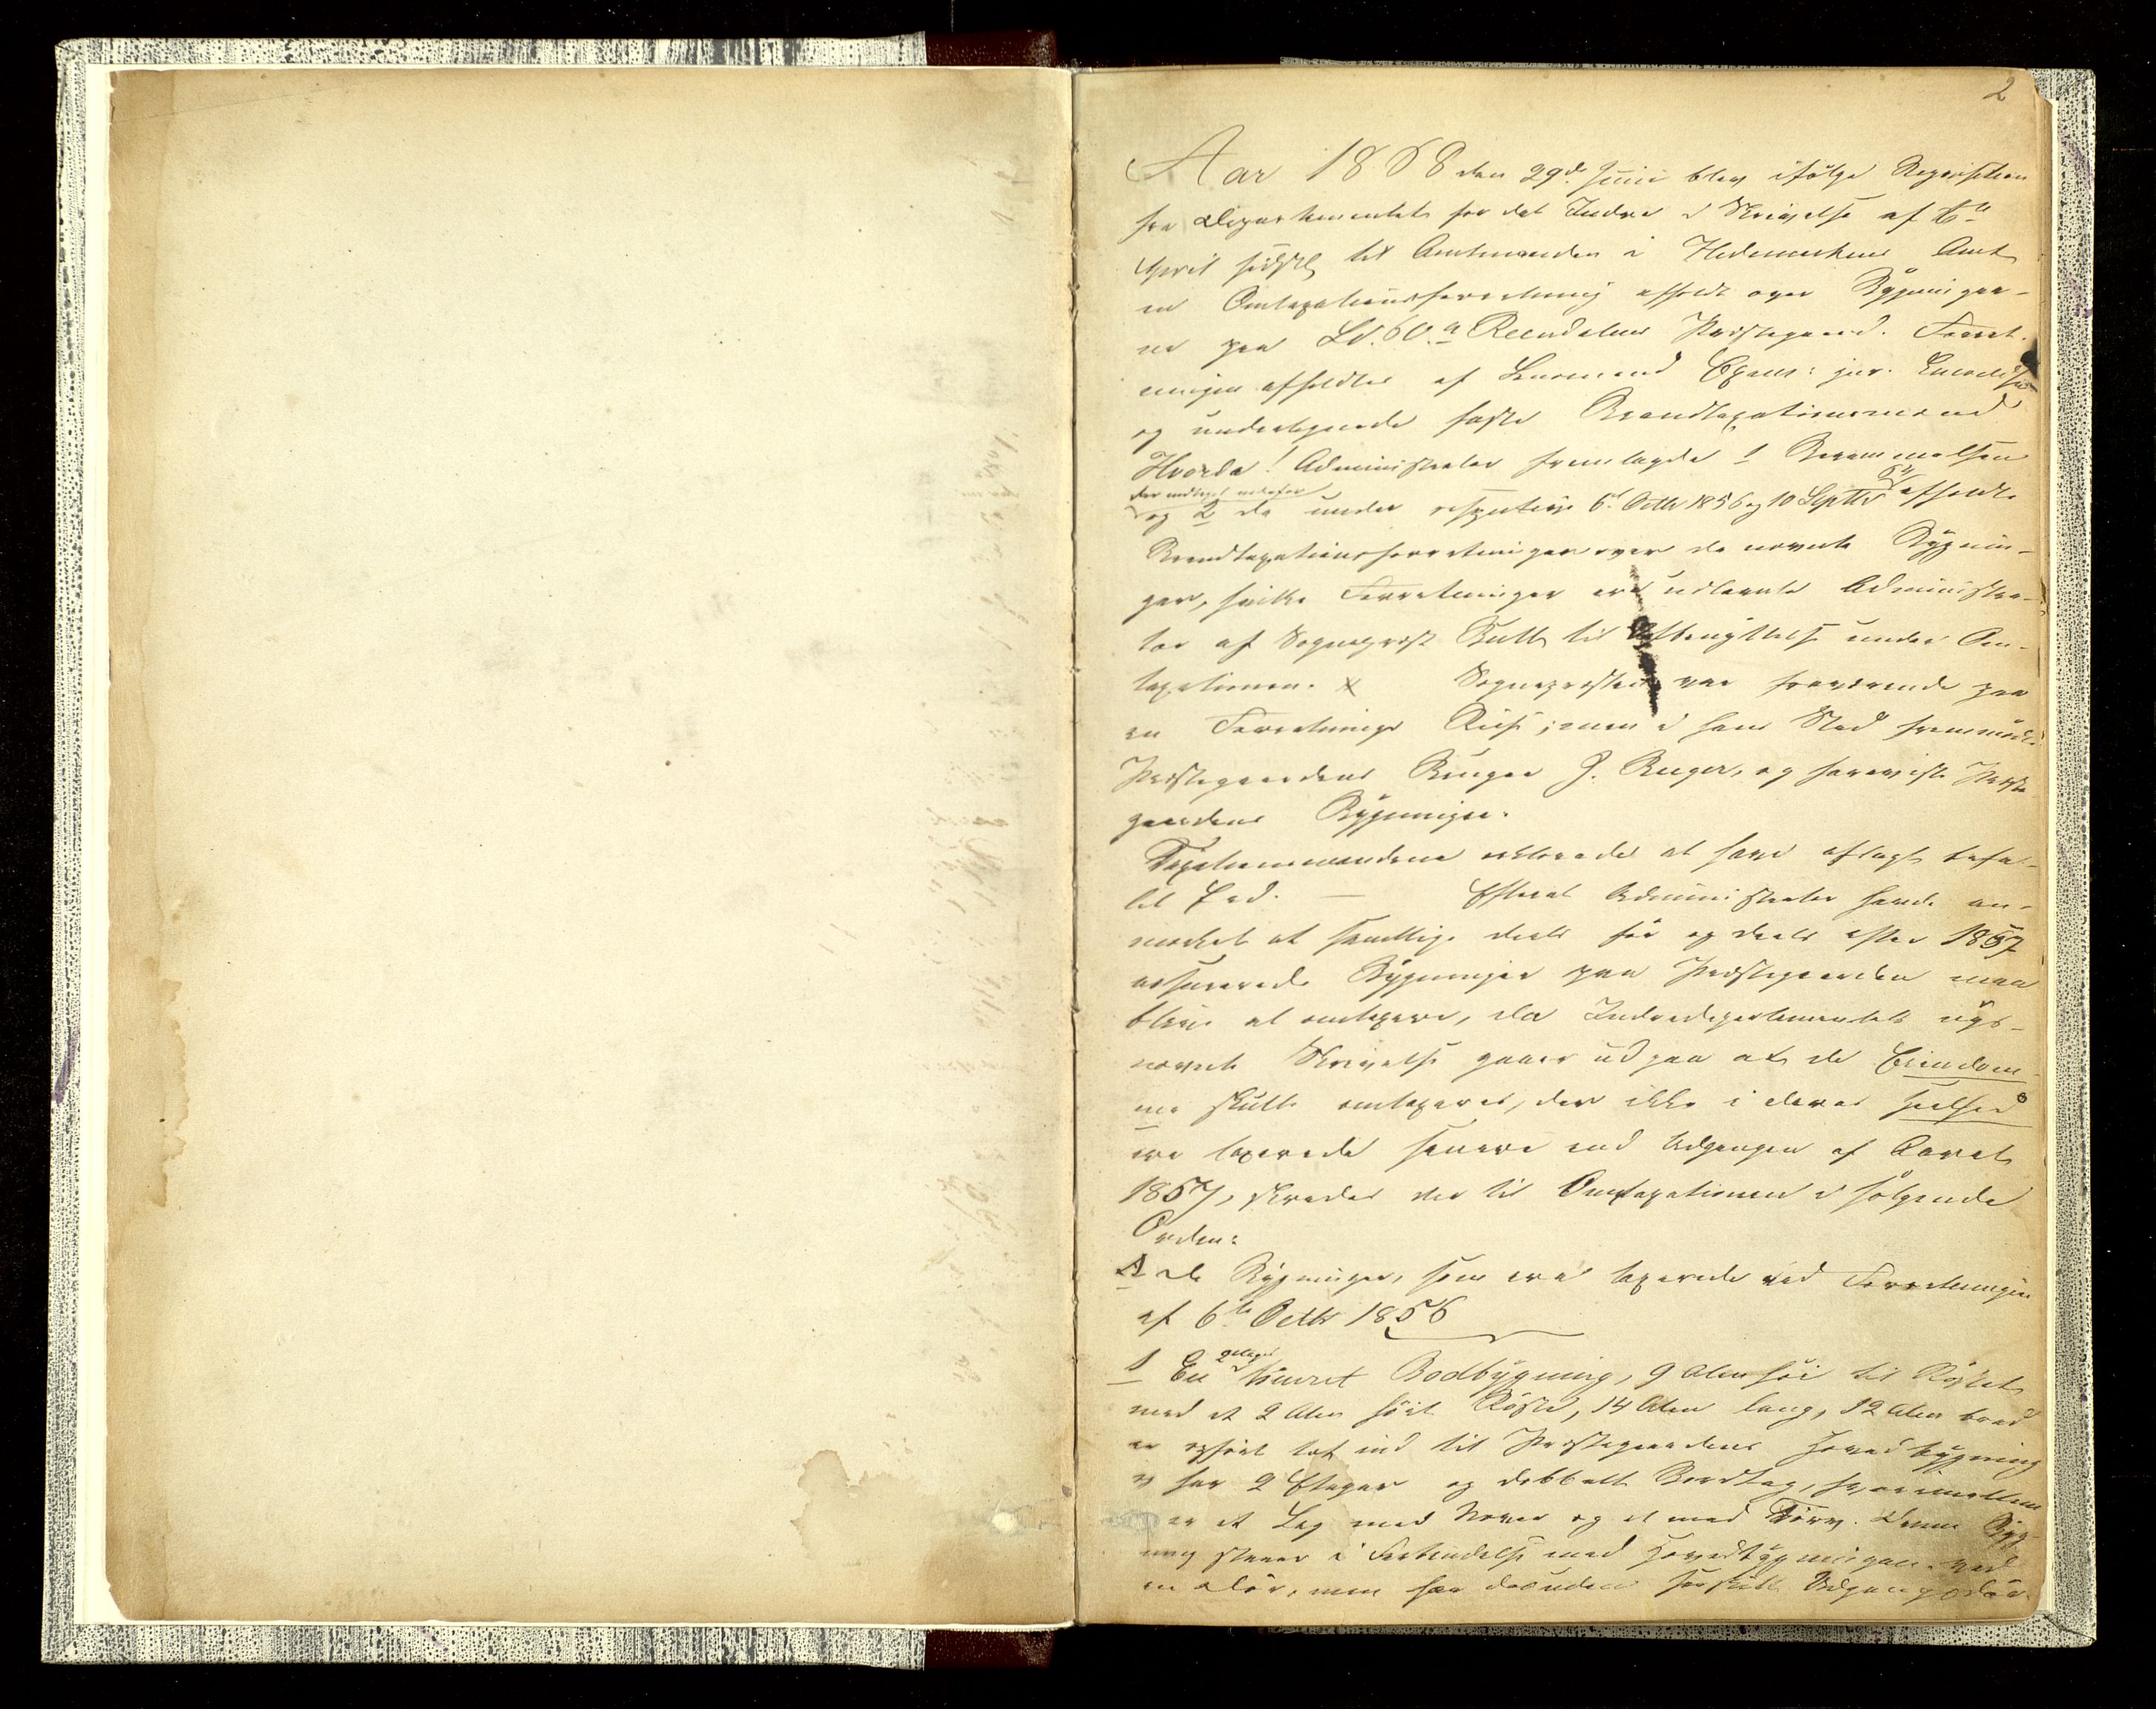 2
Aar 1868 den 29de Juni blev ifølge Reqvisition
fra Departementet for det Indre i Skrivelse af
April sidstl. til Amtmanden i Hedemarkens Amt
en Omtaxationsforretning afholdt over Bygninger-
ne paa Lb. 60.a Reendalens Præstegaard. Forret-
ningen afholdtes af Lensmand Exam: jur.
og undertegnede faste Brandtaxationsmænd
Hvorda! Administrator fremlagde 1 Berammelsen
der indtages nedenfor
og 2 de under respective 6te Octbr 1856 og 10 Septbr 64 afholdte
Brandtaxationsforretninger over de nævnte Bygnin-
ger, hvilke Forretninger ere udlaante Administra-
tor af Sogneprest Bull til Afbenyttelse under Om-
taxationen. x Sognepresten var fraværende paa
en Forretnings Reise; men i hans Sted fremmødte
Præstegaardens Bruger J. Ruger, og foreviste Præste
gaardens Bygninger.
Taxationsmændene erklærede at have aflagt befa-
let Eed. — Efterat Administrator havde an-
mærket at samtlige deels før og deels efter 1857
assurerede Bygninger paa Præstegaarden maa
blive at omtaxere, da Indredepartementets oys-
nævnte Skrivelse gaaer ud paa at de Eiendom-
me skulle omtaxeres, der ikke i deres Heelhed
ere taxerede senere end Udgangen af Aaret
1857, skredes der til Omtaxationen i følgende
Orden:
A de Bygninger, som ere taxerede ved Forretningen
af 6te Octbr 1856
1 En 2 etages tømret Bodbygning, 9 Alen høi til Røstet
med et 2 Alen høit Røste, 14 Alen lang, 12 Alen bred
er opført tæt ind til Præstegaardens Hovedbygning
og har 2 Etager og dobbelt Bordtag, hvorimellem
er et Lag med Næver og et med Törv. Denne Byg-
ning staaer i Forbindelse med Hovedbygningen ved
en Dör, men har desuden særskilt Udgangsdör.